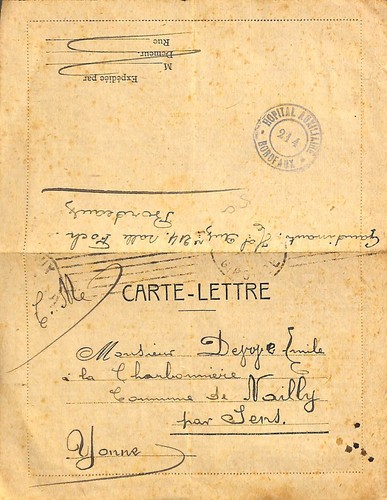 Expédiée par
M
Demeur.
Rue
HOPITAL AUXILIAIRE
214
BORDEAUX
salle Foch.
Bordeaux
CARTE-LETTRE
Monsieur Emile
à la Charbonnière
Commune de Nailly
par Sens.
Yonne